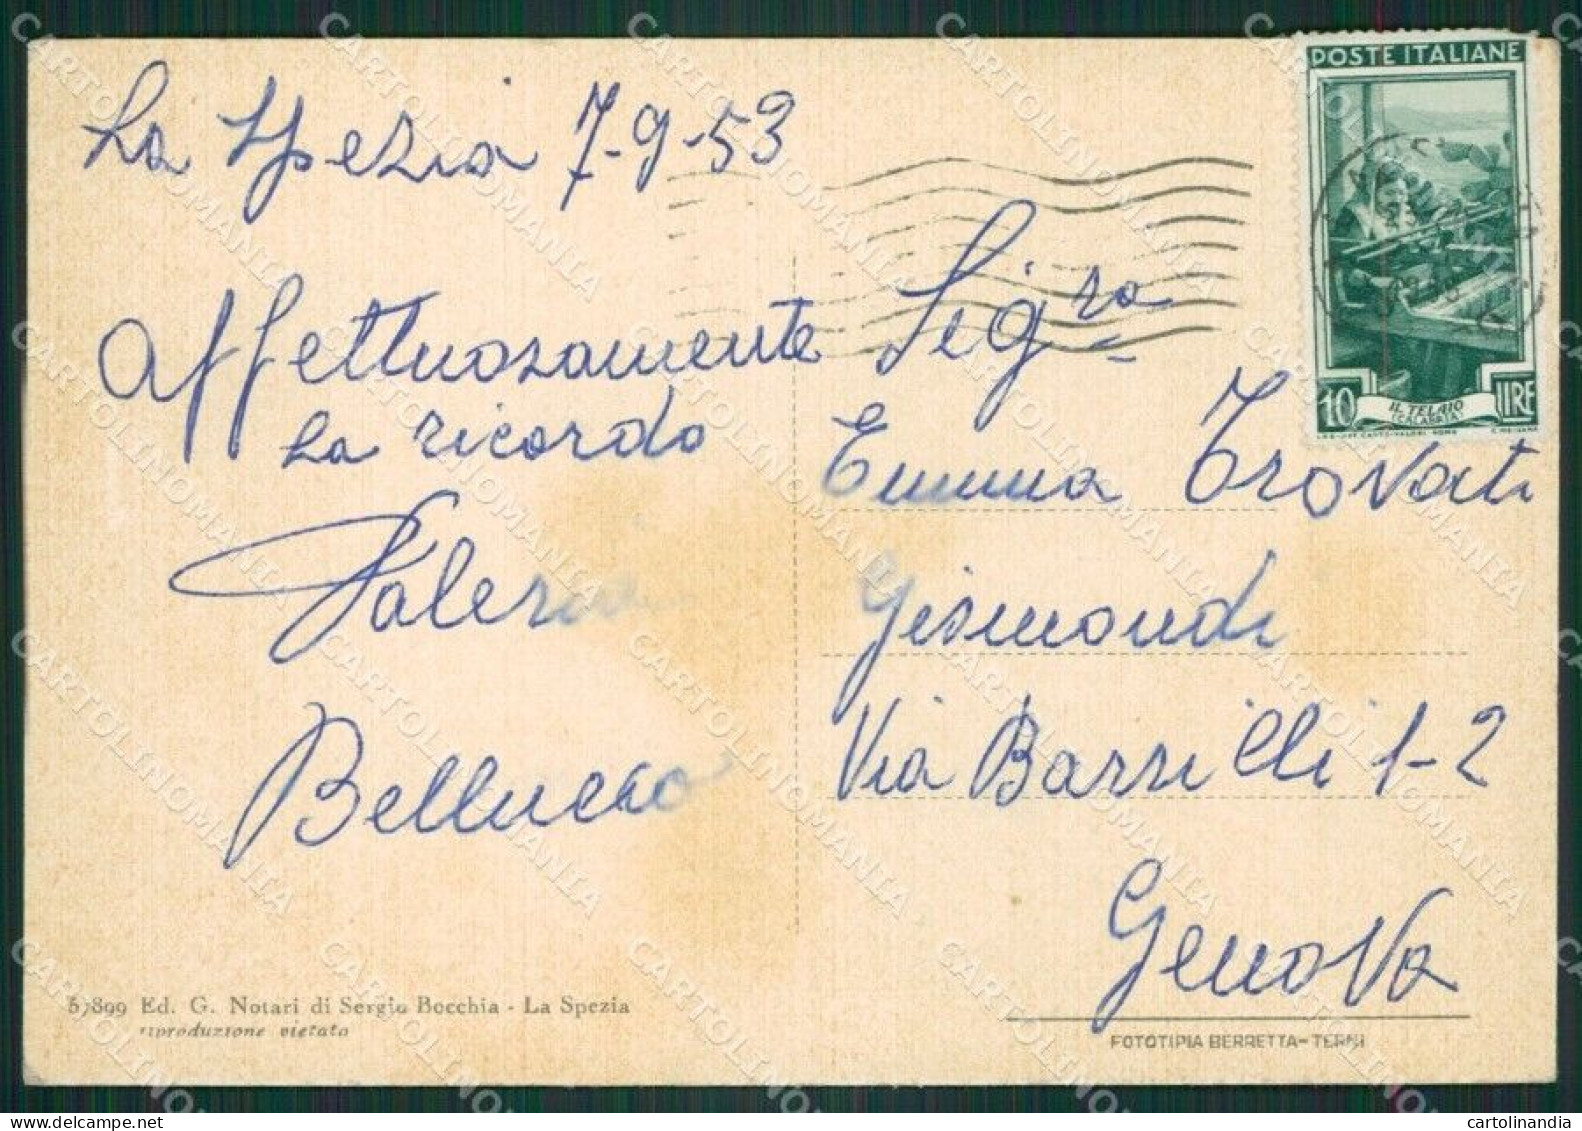 La Spezia 7-9-53
Affettuosamente
La ricordo
Bellucco
Sig.ra
Emma Trovati
Gismondi
Via Barrili 1-2
Genova
POSTE ITALIANE
10 LIRE
IL TELAIO
(CALABRIA)
67899 Ed. G. Notari di Sergio Bocchia - La Spezia
riproduzione vietata
FOTOTIPIA BERRETTA - TERNI
CARTOLINOMANIA
cartolinandia